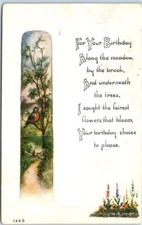 For Your Birthday
Along the meadow,
by the brook,
And underneath
the trees,
I sought the fairest
flowers that bloom,
Your birthday choice
to please.